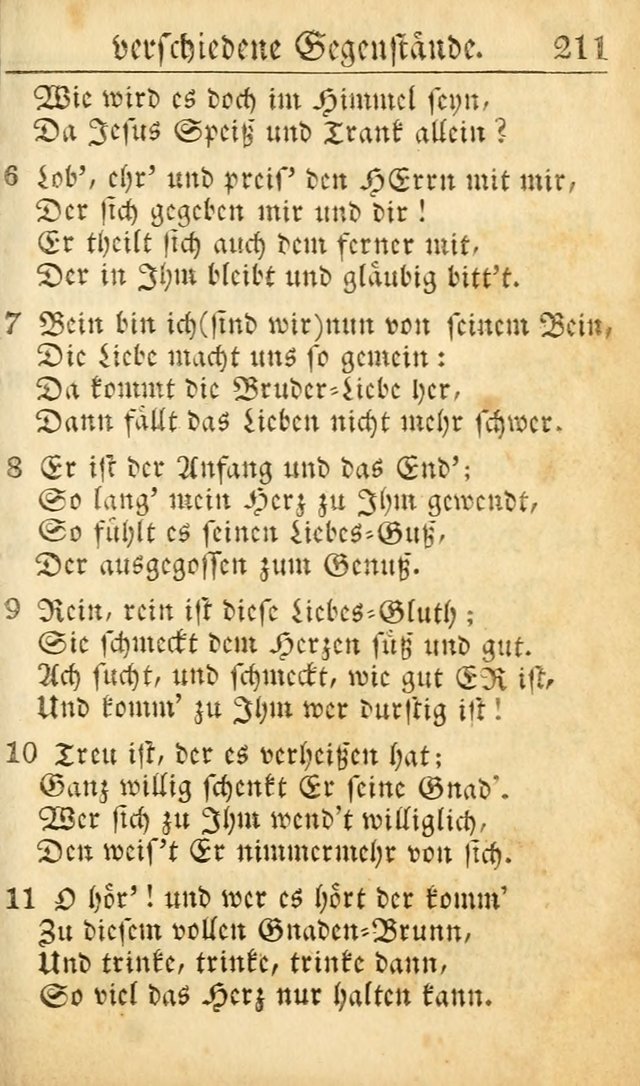 verschiedene Gegenstände. 211
Wie wird es doch im Himmel seyn,
Da Jesus Speiß und Trank allein?
6 Lob', ehr' und preis' den HErrn mit mir,
Der sich gegeben mir und dir!
Er theilt sich auch dem ferner mit,
Der in Ihm bleibt und gläubig bitt't.
7 Bein bin ich(sind wir)nun von seinem Bein,
Die Liebe macht uns so gemein:
Da kommt die Bruder-Liebe her,
Dann fällt das Lieben nicht mehr schwer.
8 Er ist der Anfang und das End';
So lang' mein Herz zu Ihm gewendt,
So fühlt es seinen Liebes-Guß,
Der ausgegossen zum Genuß.
9 Rein, rein ist diese Liebes-Gluth;
Sie schmeckt dem Herzen süß und gut.
Ach sucht, und schmeckt, wie gut ER ist,
Und komm' zu Ihm wer durstig ist!
10 Treu ist, der es verheißen hat;
Ganz willig schenkt Er seine Gnad'.
Wer sich zu Ihm wend't williglich,
Den weis't Er nimmermehr von sich.
11 O hör'! und wer es hört der komm'
Zu diesem vollen Gnaden-Brunn,
Und trinke, trinke, trinke dann,
So viel das Herz nur halten kann.